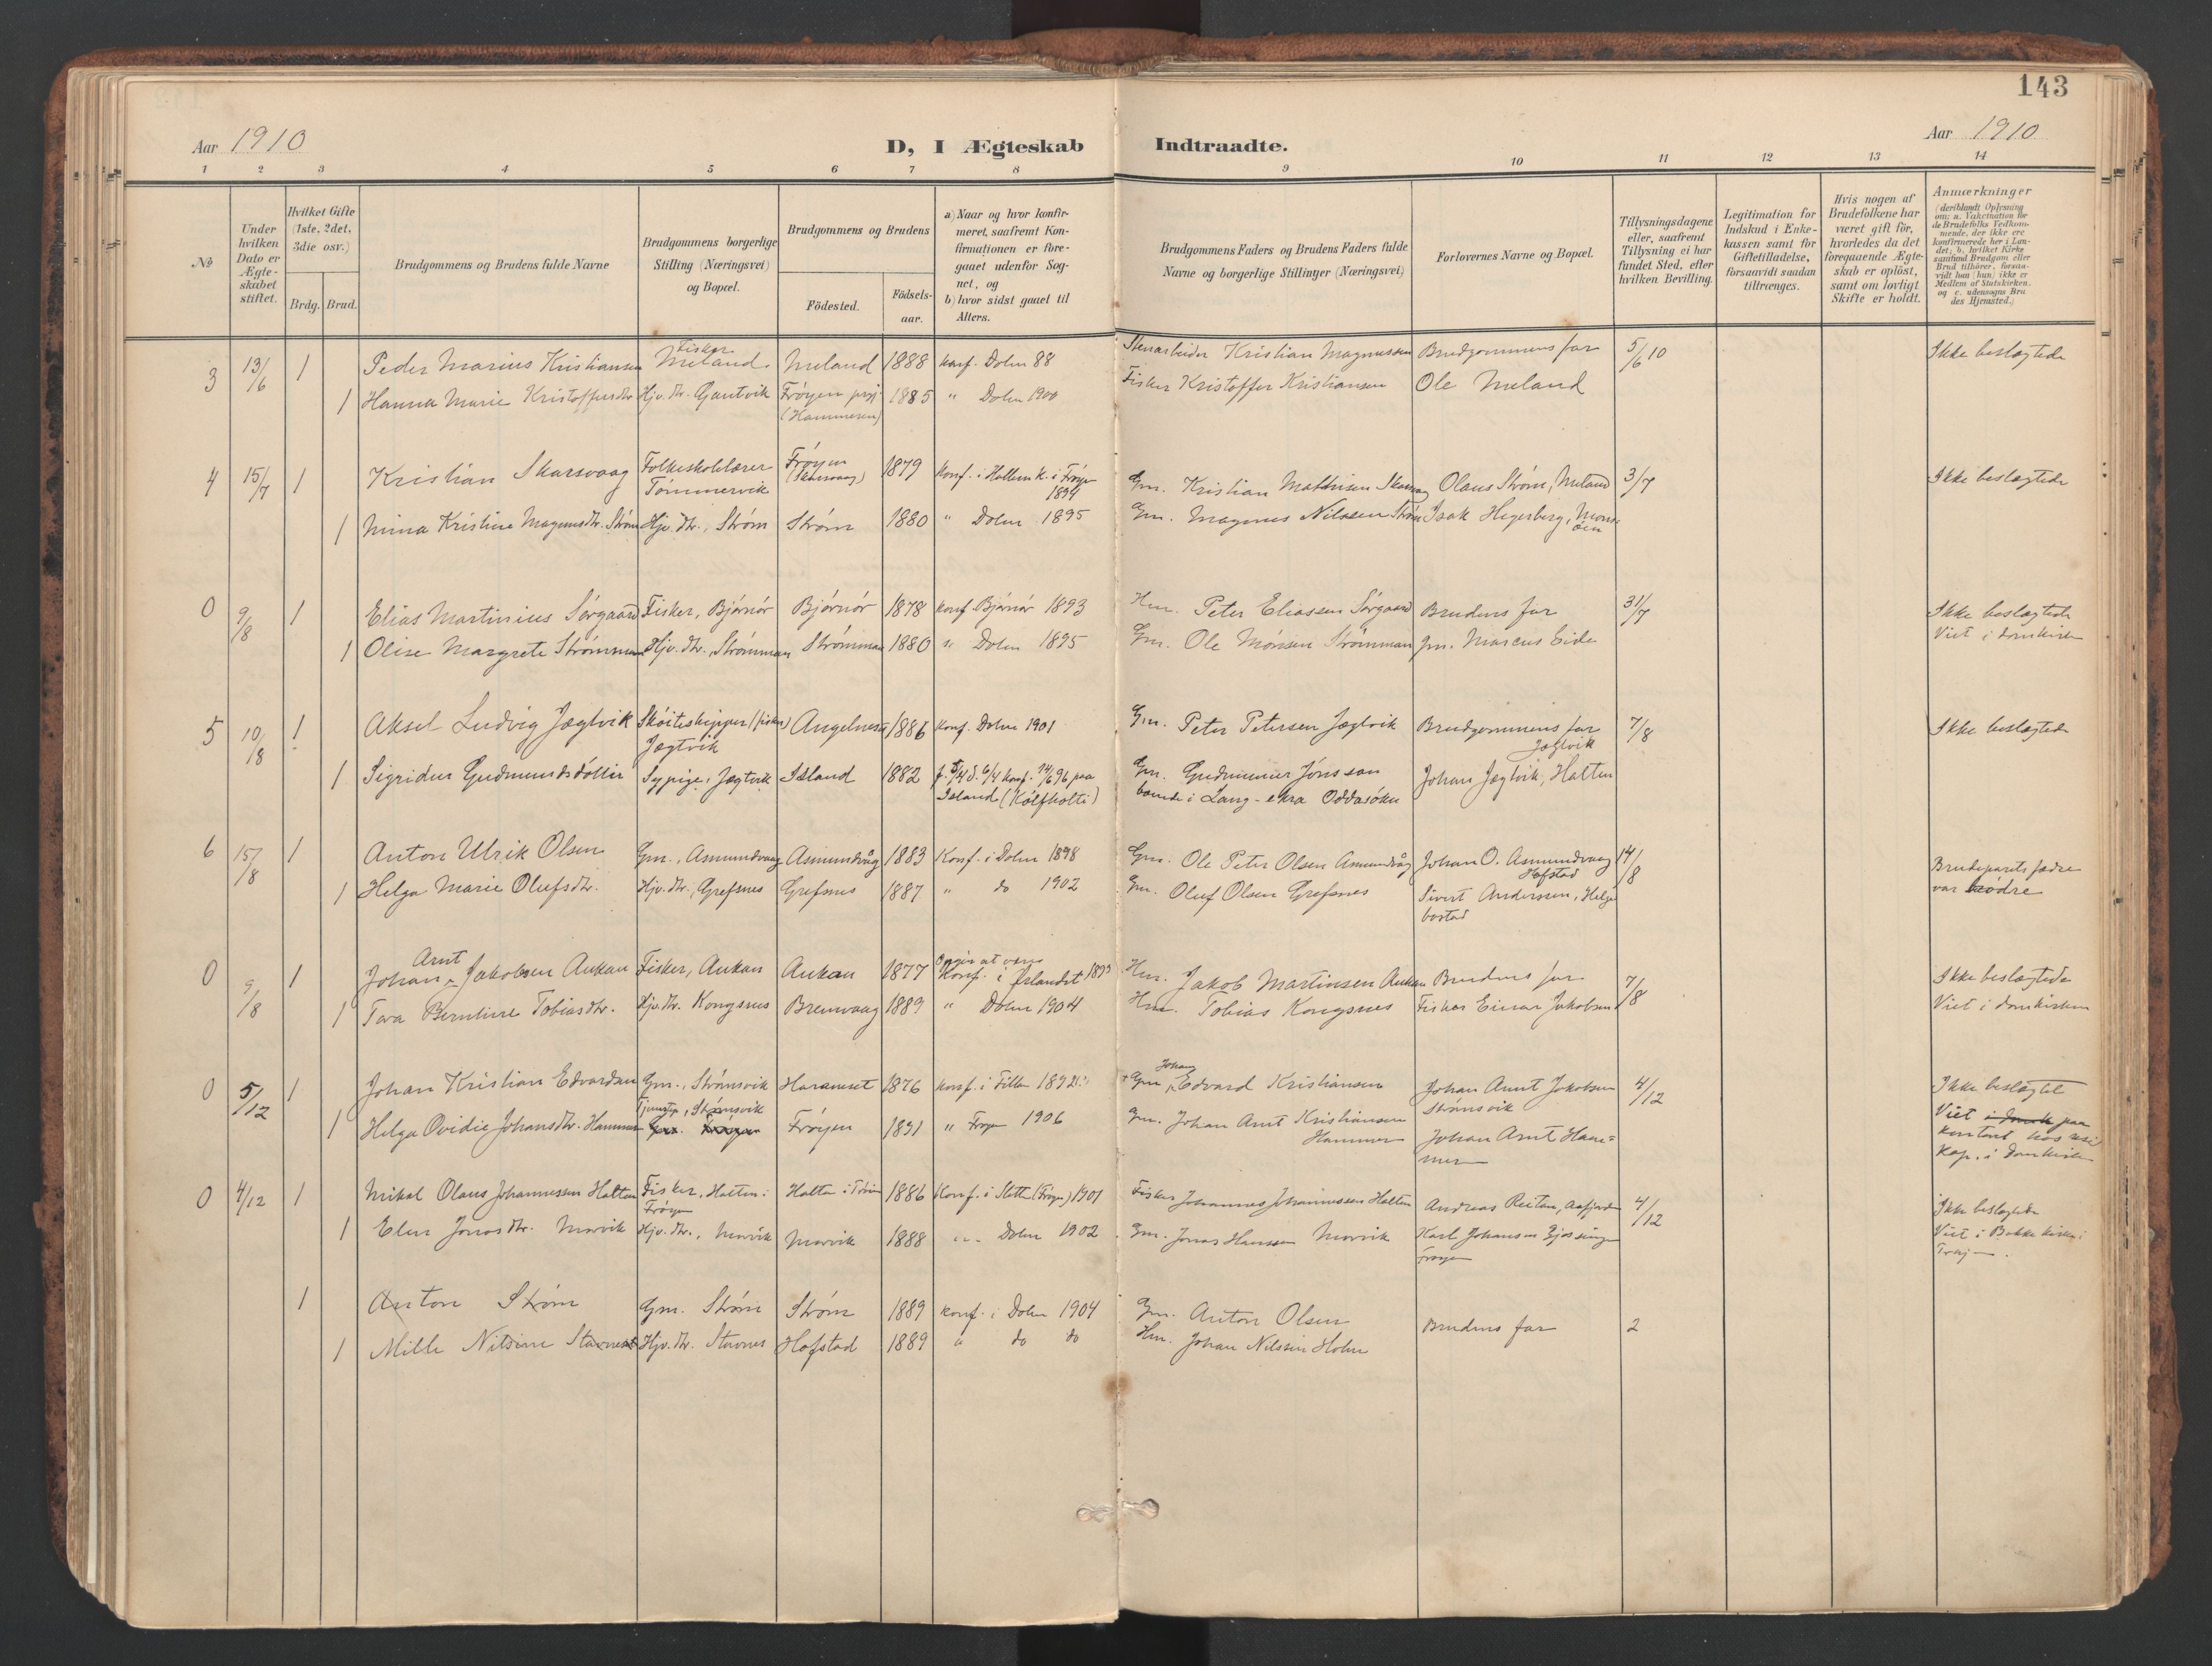 143
Aar 1910
D, I Ægteskab Indtraadte.
Aar 1910
1 2 3 4 5 6 7 8 9 10 11 12 13 14
No
Under hvilken Dato er Ægteskabet stiftet.
Hvilket Gifte (1ste, 2det, 3die osv.)
Brdg. Brud.
Brudgommens og Brudens fulde Navne
Brudgommens borgerlige Stilling (Næringsvei) og Bopæl.
Brudgommens og Brudens
Födested.
Födsels-aar.
a) Naar og hvor konfirmeret, saafremt Konfirmationen er foregaaet udenfor Sognet, og
b) hvor sidst gaaet til Alters.
Brudgommens Faders og Brudens Faders fulde Navne og borgerlige Stillinger (Næringsvei)
Forlovernes Navne og Bopæl.
Tillysningsdagene eller, saafremt Tillysning ei har fundet Sted, efter hvilken Bevilling.
Legitimation for Indskud i Enkekassen samt for Giftetilladelse, forsaavidt saadan tiltrænges.
Hvis nogen af Brudefolkene har været gift för, hvorledes da det foregaaende Ægteskab er oplöst, samt om lovligt Skifte er holdt.
Anmærkninger
(deriblandt Oplysning om: a. Vakcination for de Brudefolks Vedkommende, der ikke ere konfirmerede her i Landet; b. hvilket Kirkesamfund Brudgom eller Brud tilhörer, forsaavidt han (hun) ikke er Medlem af Statskirken. og c. udensogns Brudes Hjemsted.)
3 13/6 1 Peder Marius Kristiansen Fisker Meland Meland 1888 konf. Dolm 88 Stenarbeider Kristian Magnussen Brudgommens far 5/6 10 Ikke beslægtede
1 Hanna Marie Kristoffersdtr. Hjv. dtr. Gjautvik Frøyen prgj. (Hammeren) 1885 " Dolm 1900 Fisker Kristoffer Kristiansen Ole Meland
4 15/7 1 Kristian Skarsvaag Folkeskolelærer Tömmervik Frøyen (Skarsvaag) 1879 konf. i Hallem k. i Frøyen 1894 Gm. Kristian Mathisen Skarsvaag Olaus Strøm, Meland 3/7 Ikke beslægtede
1 Nina Kristine Magnusdtr. Strøm Hjv. dtr., Strøm Strøm 1880 " Dolm 1895 Gm. Magnus Nilssen Strøm Isak Hegerberg,
0 9/8 1 Elias Martinius Sörgaard Fisker, Bjørnör Bjørnör 1878 konf. Bjørnör 1893 Hm. Peter Eliassen Sörgaard Brudens far 31/7 Ikke beslægtede
1 Olise Margrete Strømman Hjv. dtr., Strømman Strømman 1880 " Dolm 1895 Gm. Ole Mønsen Strømman Gm. Marcus Eide Viet i domkirken
5 10/8 1 Aksel Ludvig Jægtvik Sköiteskipper (fisker) Jægtvik Angelnes 1886 konf. Dolm 1901 Gm. Peter Petersen Jægtvik Brudgommens far Jægtvik 7/8 Ikke beslægtede
1 Sigridur Gudmundsdóttir Sypige, Jægtvik Island 1882 konf. 14/6 96 paa Island (Kólfholti) Gm. Gudmunur Jónsson bonde i Lang-ekra Oddasóku Johan Jægtvik, Halten
6 15/8 1 Anton Ulrik Olsen Gm., Asmundvaag Asmundvåg 1883 Konf. i Dolm 1898 Gm. Ole Peter Olsen Asmundvåg Johan O. Asmundvaag Hofstad 14/8 Brudeparets fædre
1 Helga Marie Olufsdtr. Hjv. dtr., Grefsnes Grefsnes 1887 " do 1902 Gm. Oluf Olsen Grefsnes Sivert Anderssen, Helgebostad var brödre
0 9/8 1 Johan Arnt Jakobsen Aukan Fisker, Aukan Aukan 1877 Opgir at være Konf. i Ørlandet 1893 Hm. Jakob Martinsen Aukan Brudens far 7/8 Ikke beslægtede
1 Tara Berntine Tobiasdtr. Hjv. dtr. Kongsnes Bremvaag 1889 " Dolm 1904 Hm. Tobias Kongsnes Fisker Einar Jakobsen Viet i domkirken
0 5/12 1 Johan Kristian Edvardsen Gm., Strømsvik Haramset 1876 konf. i Fillan 1892 Gm. Johan Edvard Kristiansen Johan Arnt Jakobsen Strømsvik 4/12 Ikke beslægtet
1 Helga Ovidie Johansdtr. Hammer Strømsvik Frøyen 1891 " Frøyen 1906 Gm. Johan Arnt Kristiansen Hammer Johan Arnt Hammer Viet i domk paa kontoret hos res. Kap. i domkirken
0 4/12 1 Mikal Olaus Johannessen Halten Fisker, Halten i Frøyen Halten i Frøien 1886 Konf. i Sletta (Frøyen) 1901 Fisker Johannes Johannessen Halten Andreas Reitan, Aafjorden 4/12 Ikke beslægtede
1 Elen Jonasdtr. Morvik Hjv. dtr., Morvik Morvik 1888 " Dolm 1902 Gm. Jonas Hanssen Morvik Karl Johansen Gjæssingen Frøyen Viet i Bakke kirke i Trhj.
1 Anton Strøm Gm. Strøm Strøm 1889 konf. i Dolm 1904 Gm. Anton Olsen Brudens far 2
1 Mille Nilsine Stavnes Hjv. dtr. Stavnes Hofstad 1889 " do do Hm. Johan Nilssen Holm